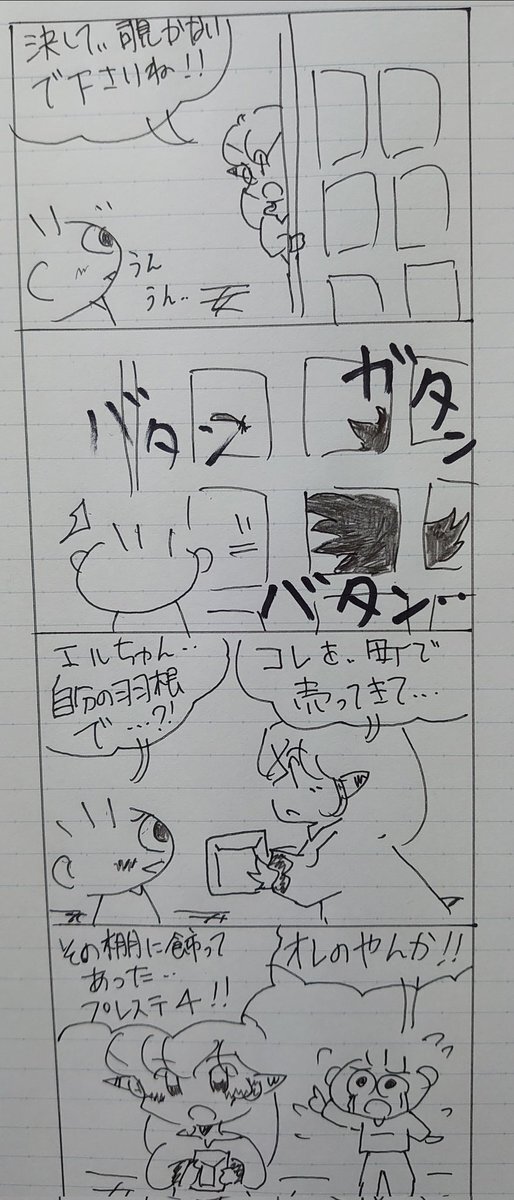 決して、覗かない
で下さいね!!
うん
うん..
バタン
ガタン
バタン..
コレを、町で
売ってきて...
エルちゃん...
自分の羽根
で...?!
その棚に飾って
あった...
プレステ4!!
オレのやんか!!